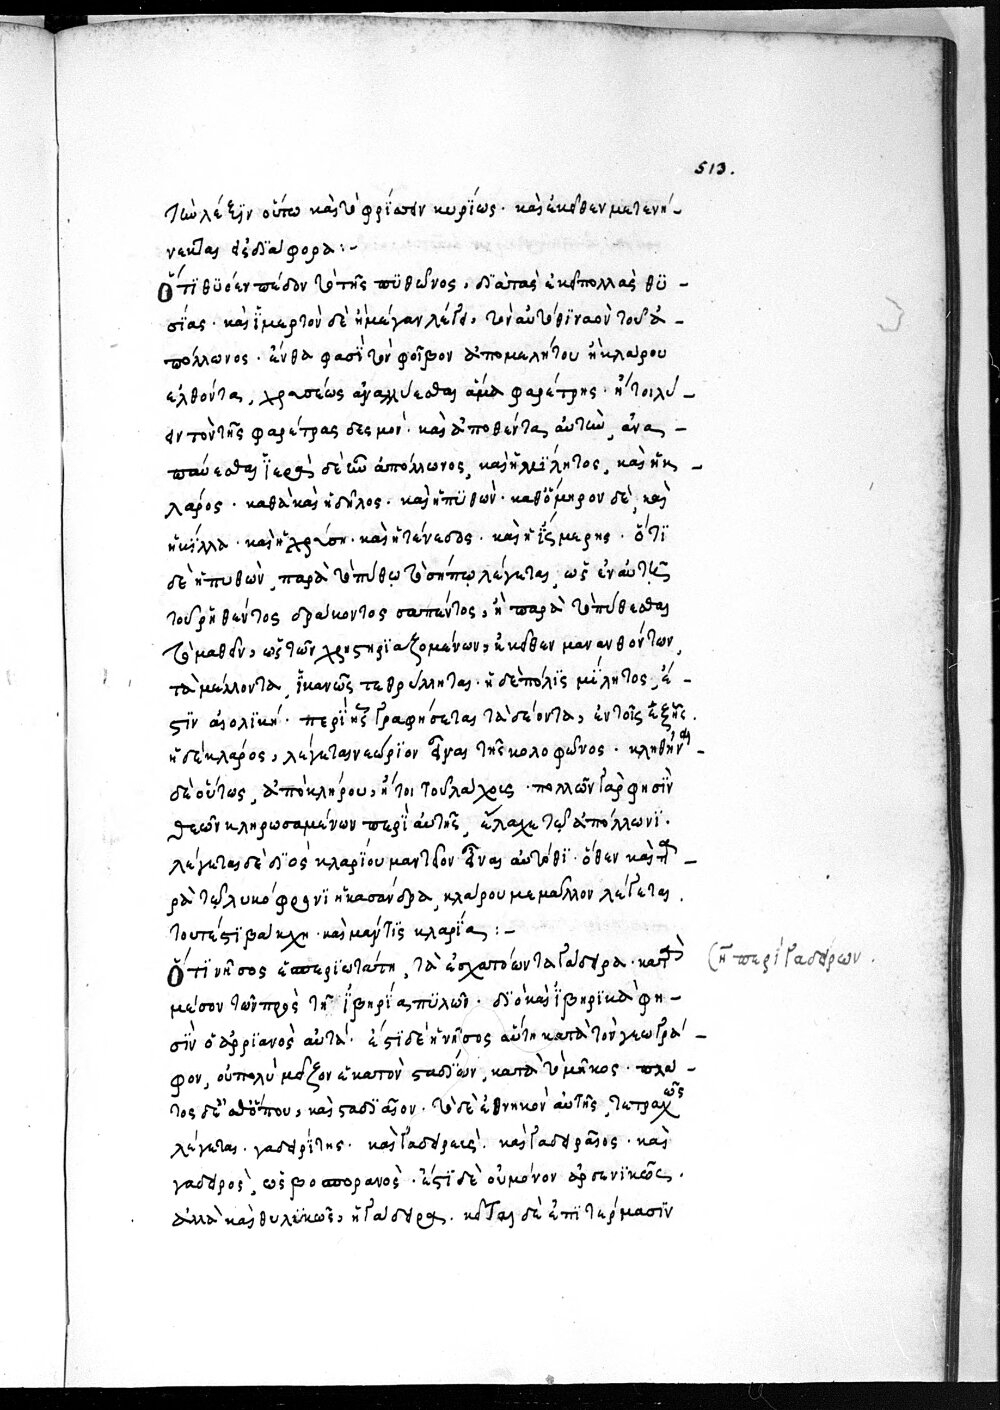 513.
τὼ λέξϊν οὕτω καὶ τὸ φρίασειν κυρίως· καὶ ἐκεῖθεν μετενή-
νεκται εἰς διάφορα:-
Ὅτϊ θϋόεν πέδον τὸ τῆς πϋθῶνος, διὰ τὰς ἐκεῖ πολλὰς θϋ-
σίας· καὶ ἱμερτὸν δὲ ἢ μέγαν λέγει, τὸν αὐτόθϊ ναὸν τοῦ ἀ-
πόλλωνος· ἔνθα φασὶ τὸν φοῖβον ἀπὸ μελήτου ἢ κλάρου
ἐλθόντα, χρυσέως ἀναλλύεσθαι ἅμα φαρέτρης· ἤτοι λύ-
ειν τὸν τῆς φαρέτρας δεσμόν· καὶ ἀποθέντα αὐτὼ, ἀνα-
παύεσθαι ἱερὰ δὲ τοῦ ἀπόλλωνος, καὶ ἡ μίλητος, καὶ ἡ κ-
λάρος· καθὰ καὶ ἡ δῆλος· καὶ ἡ πϋθών· καθ' ὅμηρον δὲ, καὶ
ἡ κίλλα· καὶ ἡ χρύση· καὶ ἡ τένεδος· καὶ ἡ ἴσμερης· ὅτϊ
δὲ ἡ πυθὼν, παρὰ τὸ πύθω τὸ σήπω λέγεται, ὡς ἐν αὐτῇ
τοῦ ῥηθέντος δράκοντος σαπέντος, ἢ παρὰ τὸ πύθεσθαι
τὸ μαθεῖν, ὡς τῶν χρηστηριαζομένων, ἐκεῖθεν μανανθόντων
τὰ μέλλοντα, ἱκανῶς τεθρύλληται· ἡ δὲ πόλϊς μίλητος, ἐ-
στϊν αἰολϊκή· περὶ ἧς γραφήσεται τὰ δέοντα, ἐν τοῖς ἑξῆς.
ἡ δὲ κλάρος, λέγεται νεώριον εἶναι τῆς κολοφῶνος· κληθῆναι
δὲ οὕτως, ἀπὸ κλήρου, ἤτοι τοῦ λάχεις· πολλῶν γὰρ φησὶν
θεῶν κληρωσαμένων περὶ αὐτῆς, ἔλαχε τῷ ἀπόλλωνι·
λέγεται δὲ διὸς κλαρίου μαντεῖον εἶναι αὐτόθϊ· ὅθεν καὶ πα-
ρὰ τῷ λυκόφρονι ἡ κασάνδρα, κλάρου μεμαλλον λέγεται.
τουτέστϊ βάκχη· καὶ μάντϊς κλαρία:-
Ὅτϊ νῆσος ἑσπεριωτάτη, τὰ ἐσχατόωντα γάδειρα· κατὰ
μέσον τῶν πρὸς τῇ ἰβηρία πϋλῶν· διὸ καὶ ἰβηρϊκὰ φη-
σὶν ὁ ἀρρϊανὸς αὐτά· ἔστϊ δὲ ἡ νῆσος αὕτη κατὰ τὸν γεωγρά-
φον, οὐ πολὺ μεῖζον ἑκατὸν σταδίων, κατὰ τὸ μῆκος· πλά-
τος δὲ ἀθόπου, καὶ σταδϊαῖον· τὸ δὲ ἐθνηκὸν αὐτῆς, τετραχῶς
λέγεται· γαδειρίτης· καὶ γαδειρεὺς· καὶ γαδειραῖος· καὶ
γαδειρὸς, ὡς βοσπορανὸς· ἔστϊ δὲ οὐ μόνον ἀρσενϊκῶς·
ἀλλὰ καὶ θυλϊκῶς, ἡ γάδειρα· κεῖται δὲ ἐπὶ τέρμασϊν
ἢ περὶ γαδείρων.